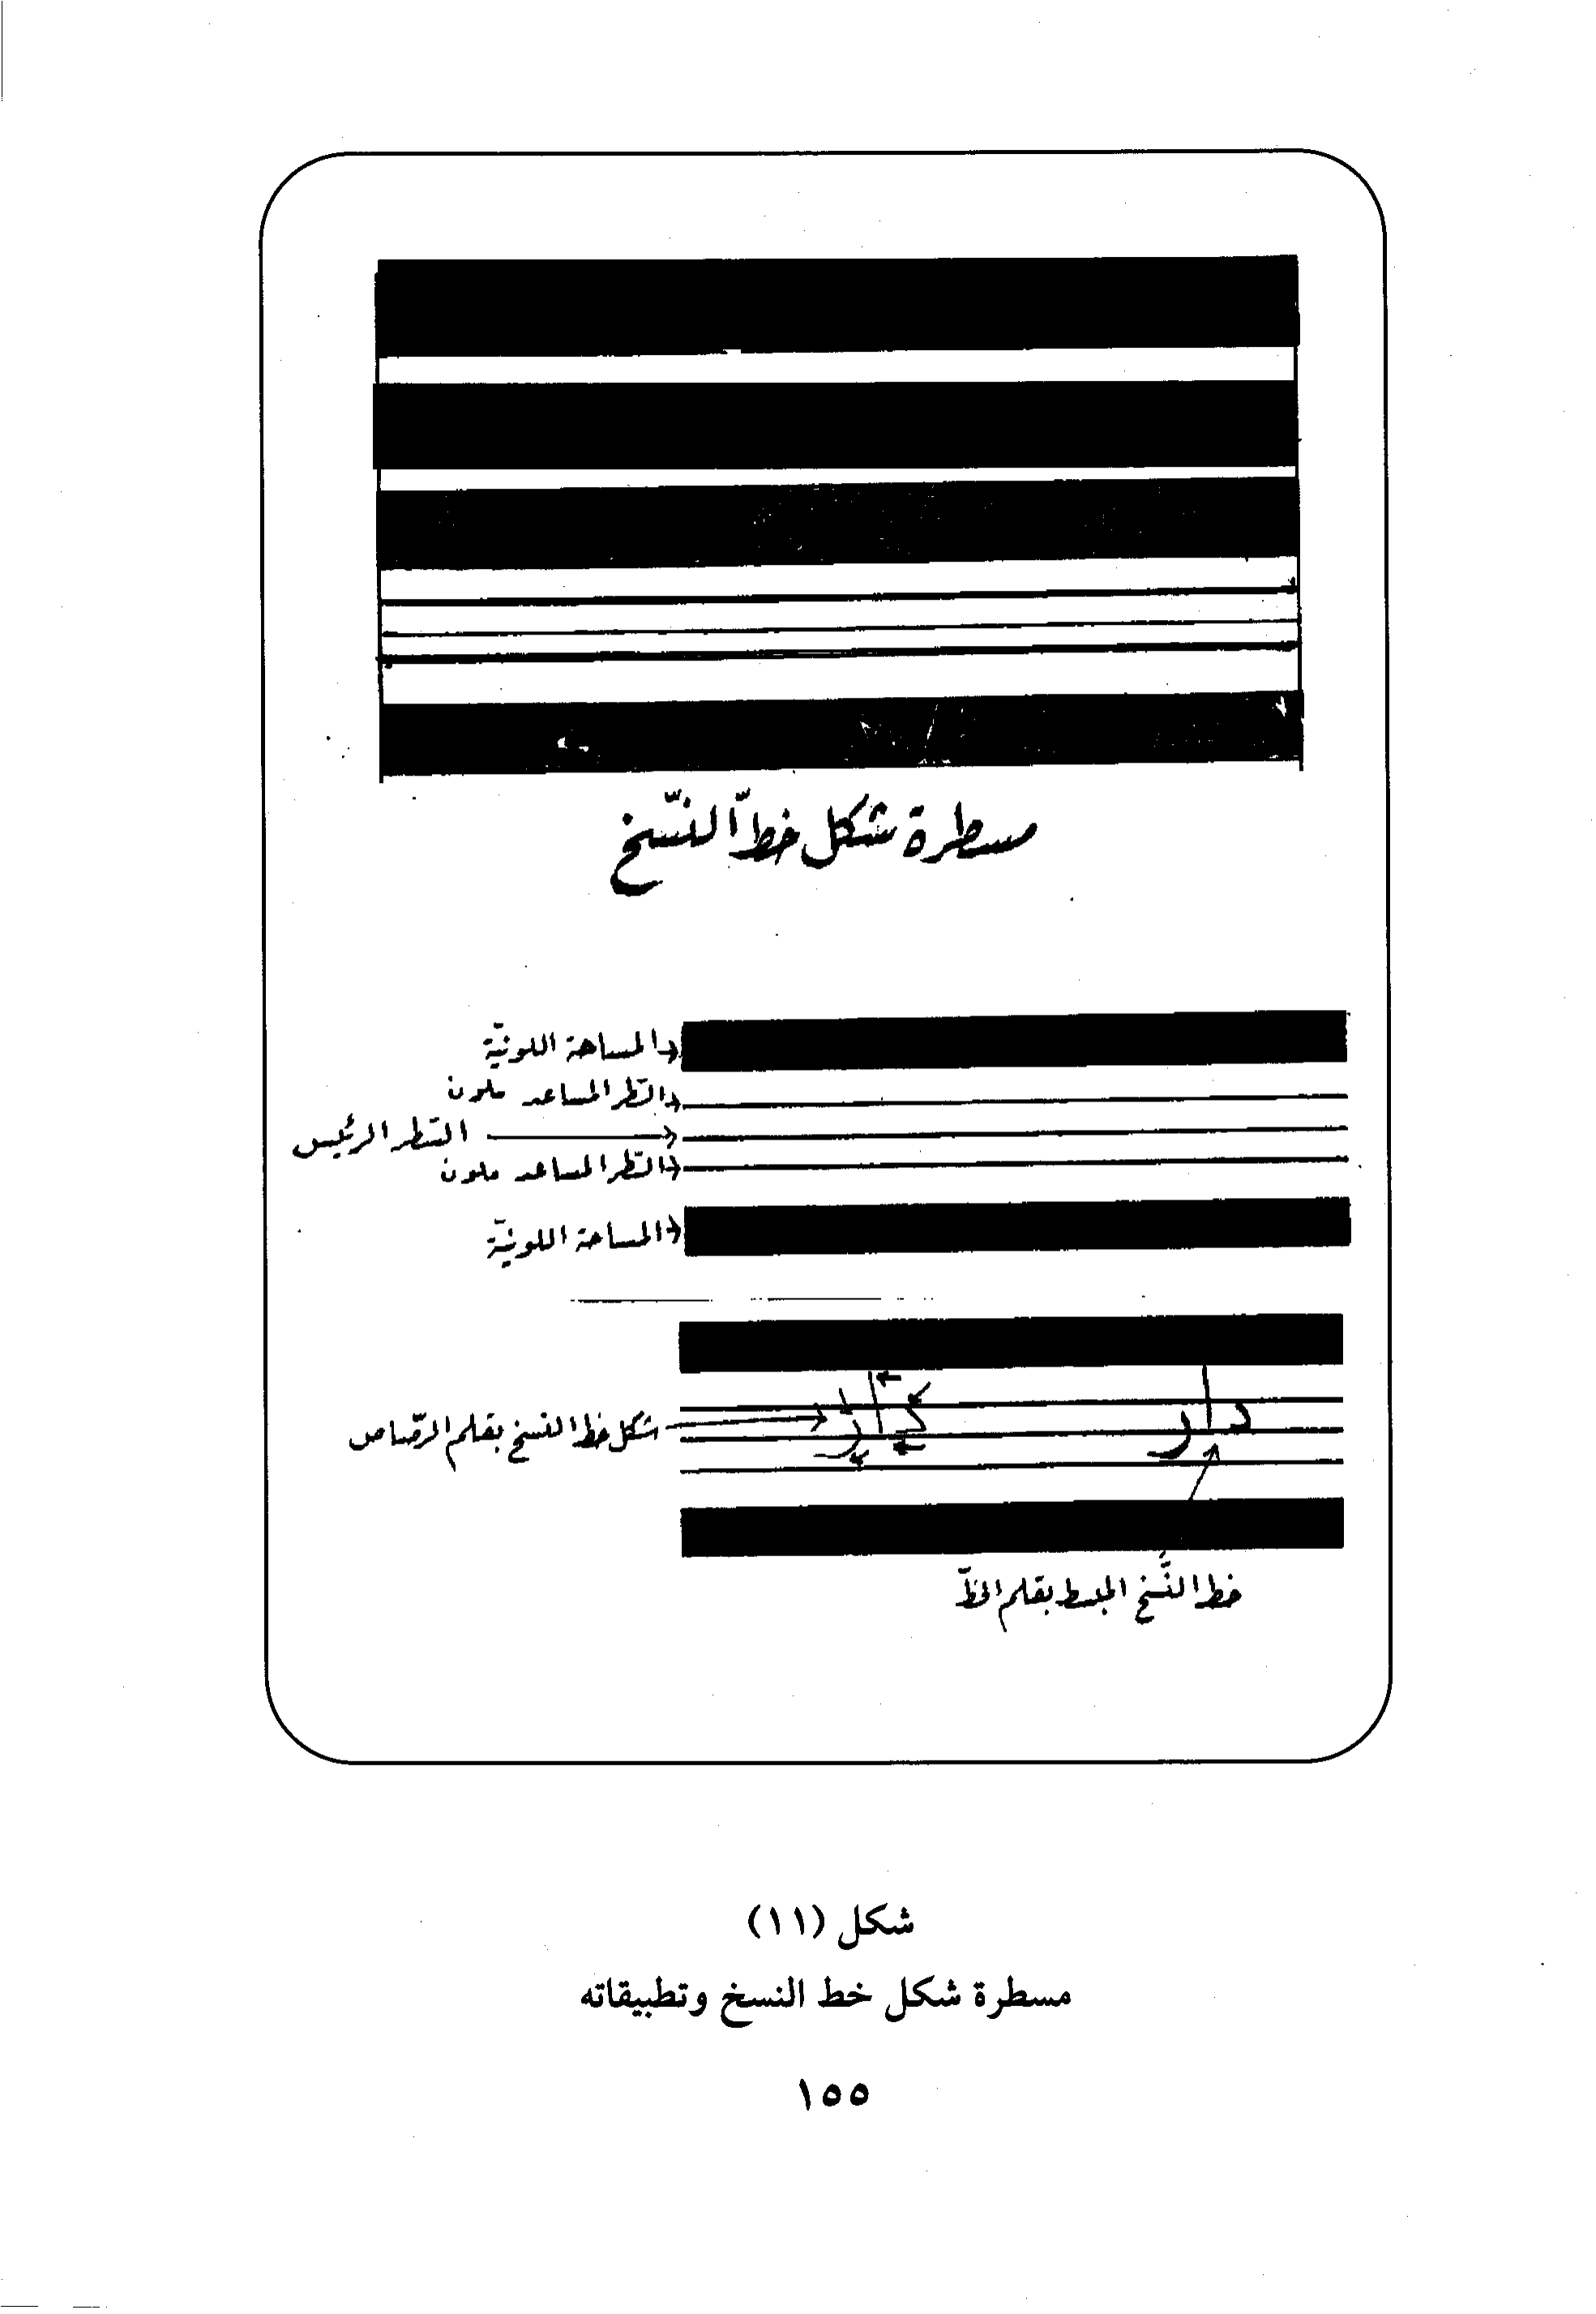 مسطرة شكل خطّ النسّخ
المساحة اللونيّة
السّطر المساعد ملون
السّطر الرئيس
السّطر المساعد ملون
المساحة اللونيّة
دار
دار
شكل خط النسخ بقلم الرّصاص
خط النَّسخ المبسط بقلم الخطّ
شكل (١١)
مسطرة شكل خط النسخ وتطبيقاته
١٥٥